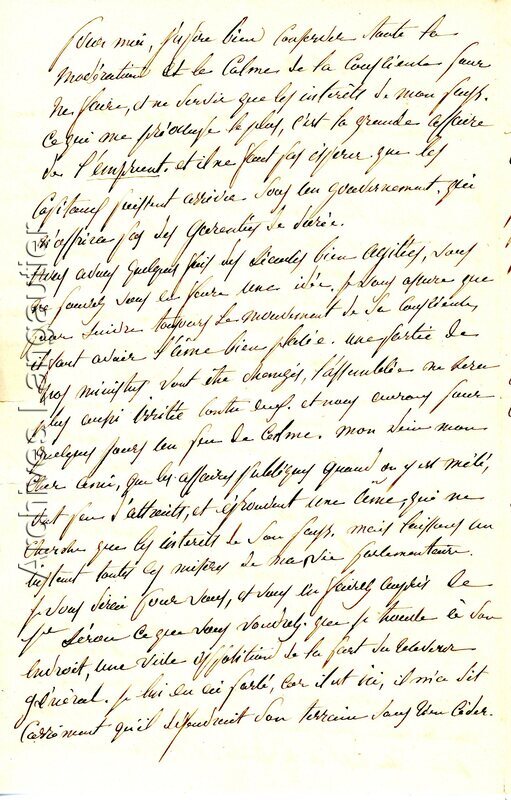 Pour moi, j'espère bien conserver toute la
modération et le calme de la conscience pour
ne faire, et ne servir que les interets de mon pays.
Ce qui me préoccupe le plus, c'est la grande affaire
de l'emprunt. et il ne faut pas espérer que les
capitaux puissent arriver sous un gouvernement. qui
n'offrira pas des garanties de durée.
nous avons quelques fois des séances bien agitées, vous
ne pouvez vous en faire une idée, je vous assure que
pour suivre toujours le mouvement de sa conscience,
il faut avoir l'âme bien placée. une partie de
nos ministres vont être changés, l'assemblée ne sera
plus aussi irritée contre eux. et nous aurons pour
quelques jours un peu de calme. mon Dieu mon
cher ami, que les affaires publiques quand on y est mêlé,
ont peu d'attraits, et éprouvent une âme, qui ne
cherche que les interets de son pays. mais laissons un
instant toutes les misères de ma vie parlementaire.
je vous dirai pour vous, et vous en ferez auprès de
Mr Sérou ce que vous voudrez. que je trouve à son
endroit, une vive opposition de la part du receveur
général. je lui en ai parlé, car il est ici, il m'a dit
carrément qu'il défendrait son terrain sans rien céder.
Archives Langautier